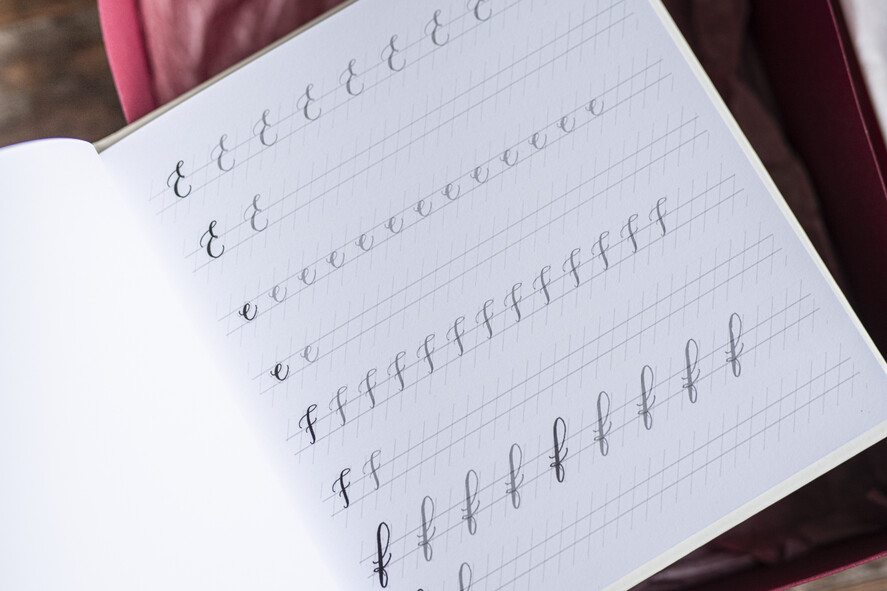 E E E E E E E E
E E
e e e e e e e e e e e e e
e e
F F F F F F F F F F F F F
F F
f f f f f f f f f